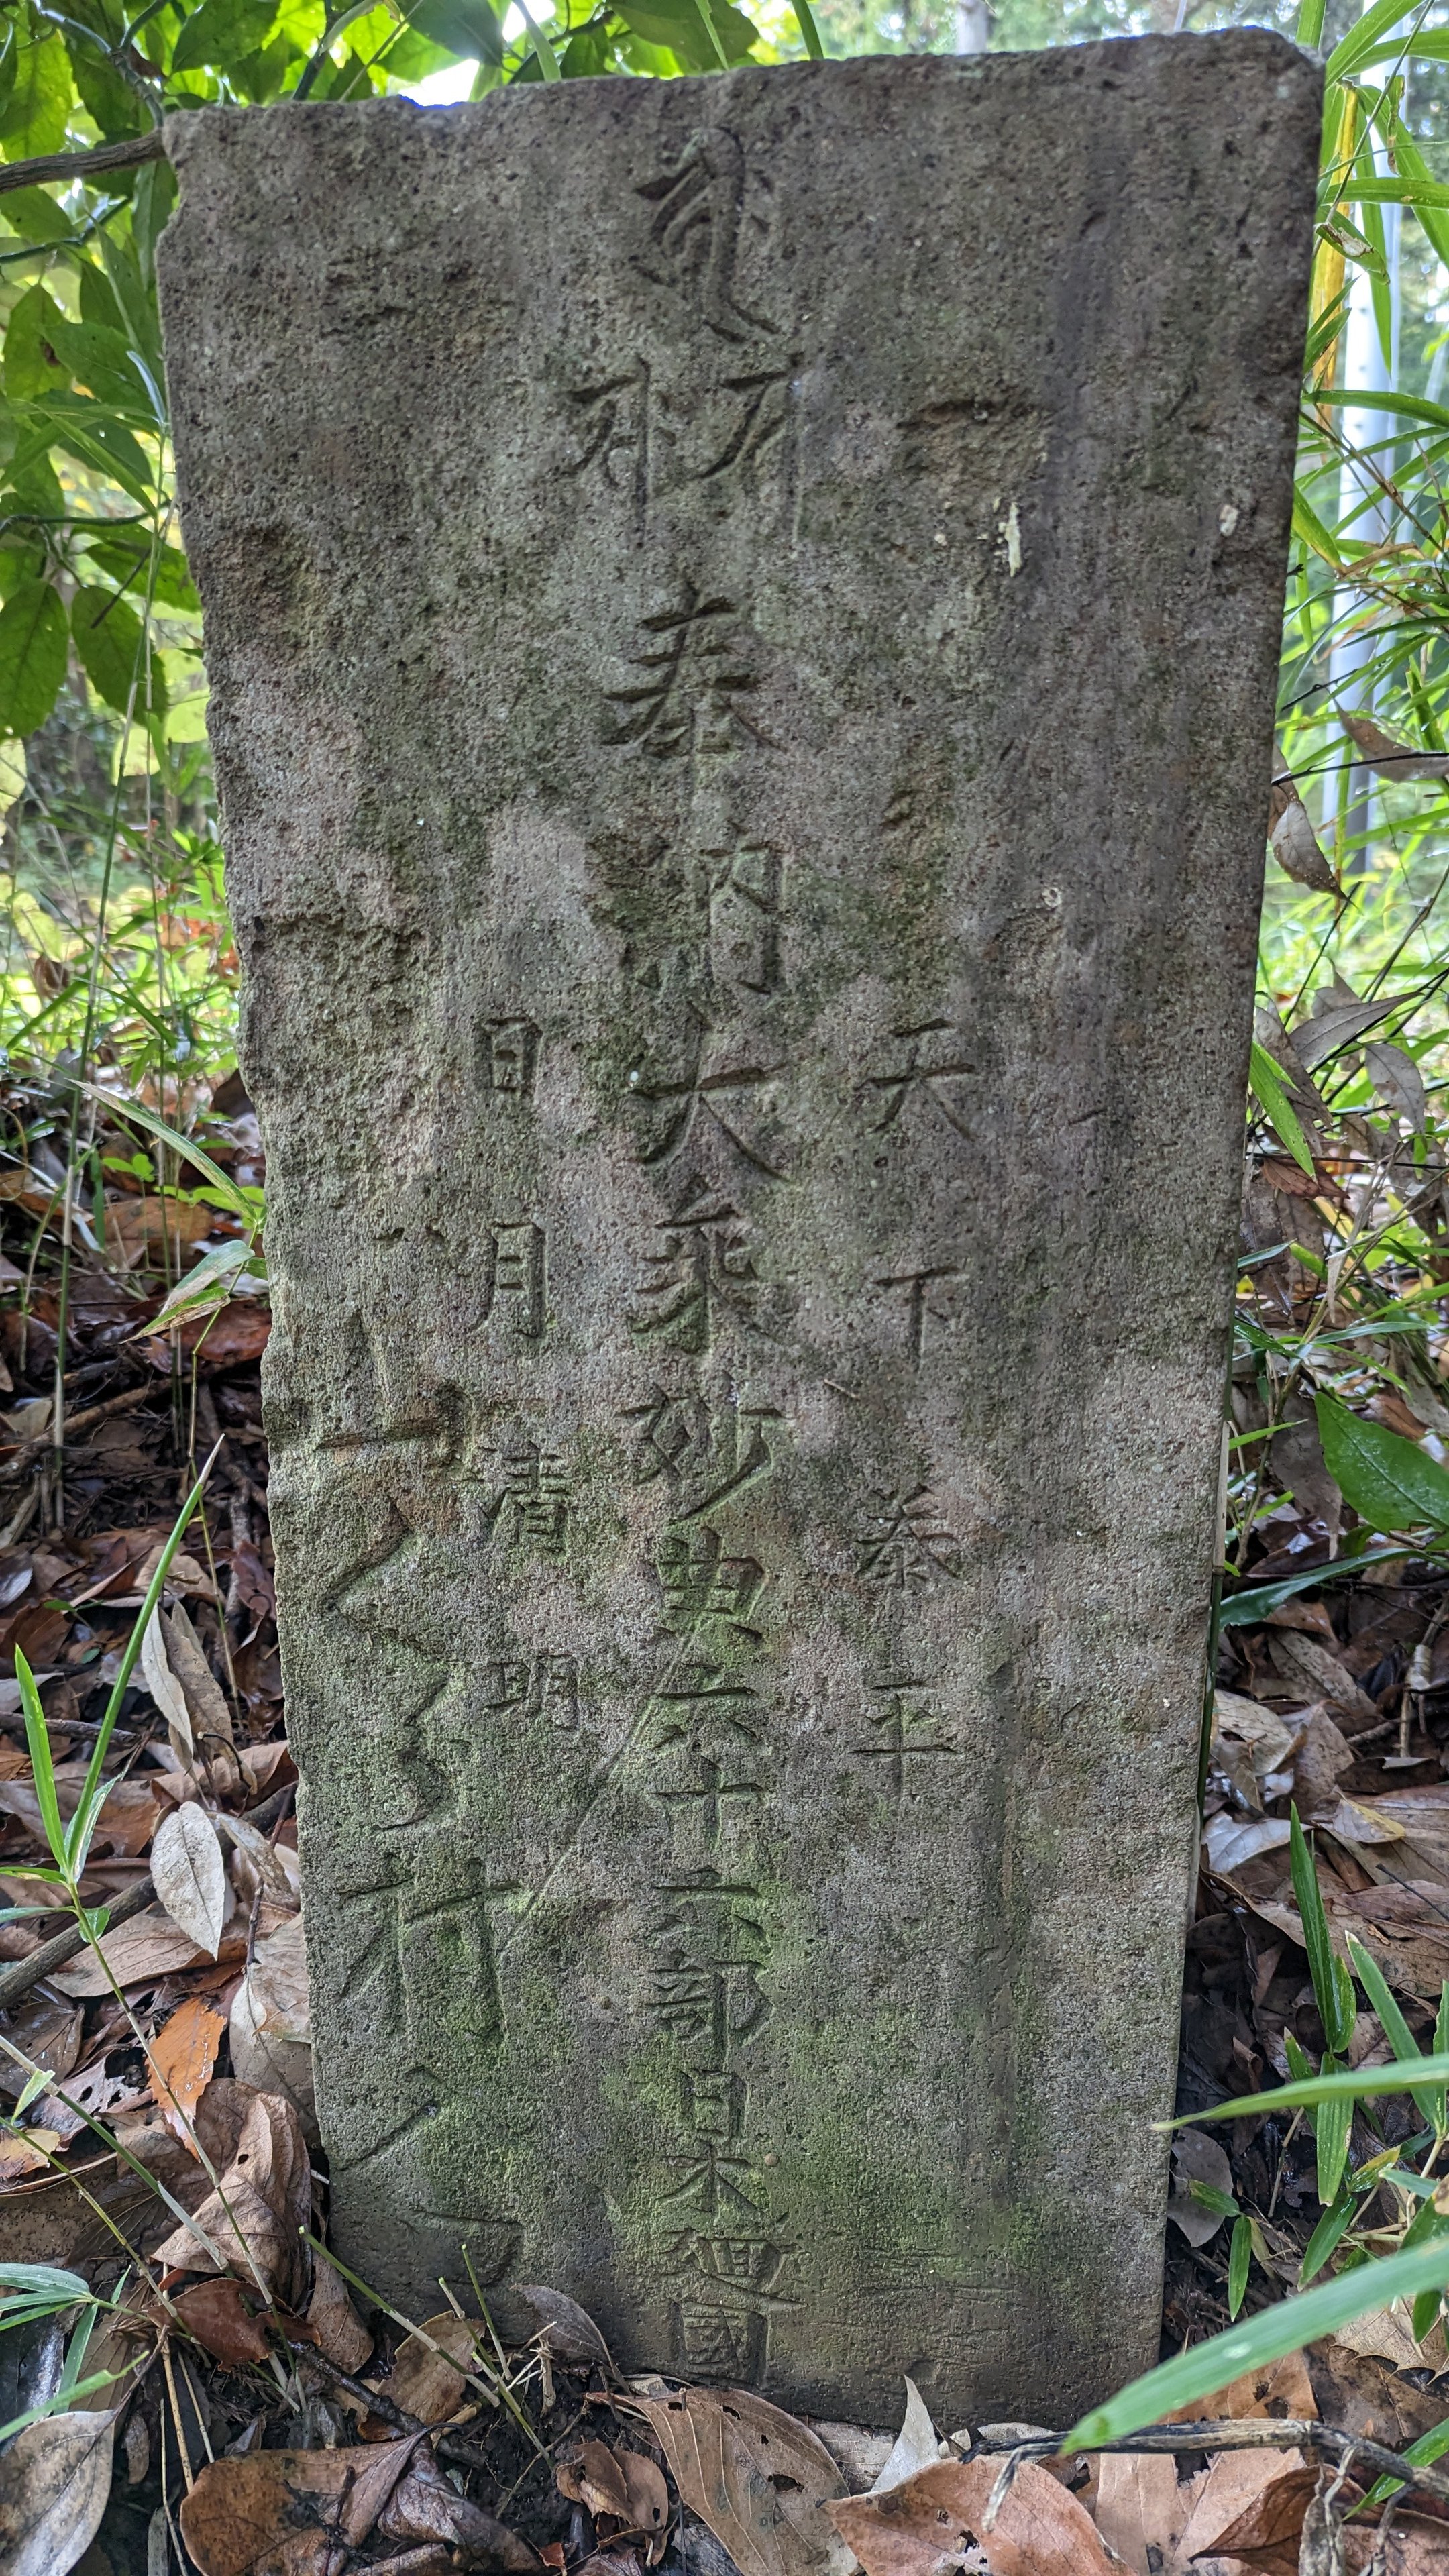 天下泰平
奉納大乗妙典六十六部日本廻國
日月清明
村